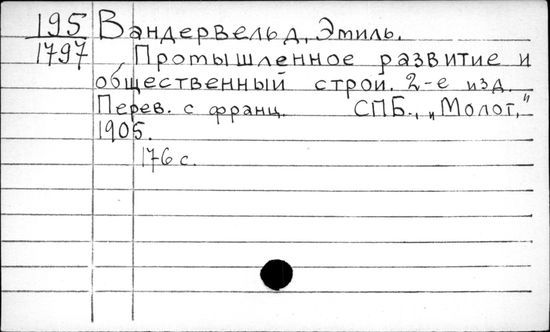 195 Вандервельд, Эмиль.
1797 Промышленное развитие и
общественный строй. 2-е изд.
Перев. с франц. СПБ., „Молот,"
1905.
176 с.